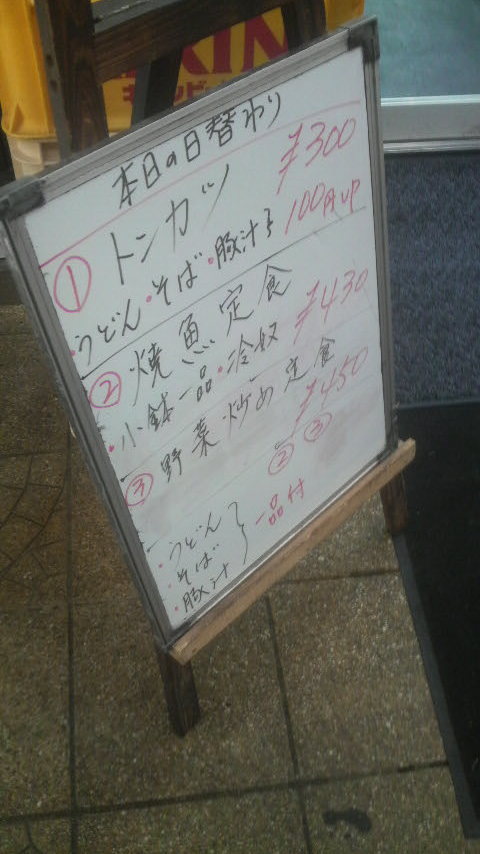 キリンビー
本日の日替わり
① トンカツ ¥300
・うどん・そば・豚汁 100円UP
② 焼魚定食 ¥430
・小鉢一品・冷奴
③ 野菜炒め定食 ¥450
② ③
・うどん
・そば 一品付
・豚汁